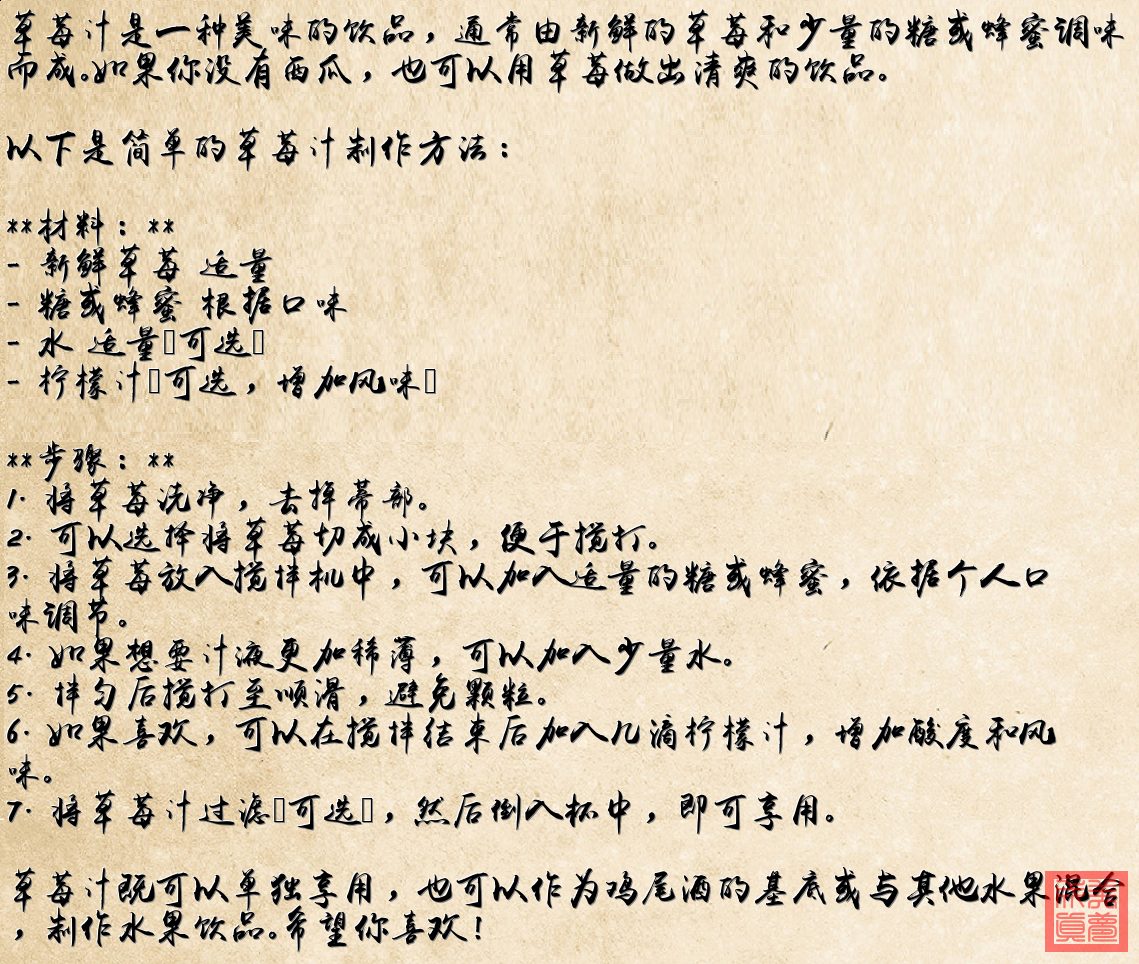 草莓汁是一种美味的饮品，通常由新鲜的草莓和少量的糖或蜂蜜调味
而成。如果你没有西瓜，也可以用草莓做出清爽的饮品。
以下是简单的草莓汁制作方法：
**材料：**
- 新鲜草莓 适量
- 糖或蜂蜜 根据口味
- 水 适量▯可选▯
- 柠檬汁▯可选，增加风味▯
**步骤：**
1. 将草莓洗净，去掉蒂部。
2. 可以选择将草莓切成小块，便于搅打。
3. 将草莓放入搅拌机中，可以加入适量的糖或蜂蜜，依据个人口
味调节。
4. 如果想要汁液更加稀薄，可以加入少量水。
5. 拌匀后搅打至顺滑，避免颗粒。
6. 如果喜欢，可以在搅拌结束后加入几滴柠檬汁，增加酸度和风
味。
7. 将草莓汁过滤▯可选▯，然后倒入杯中，即可享用。
草莓汁既可以单独享用，也可以作为鸡尾酒的基底或与其他水果混合
，制作水果饮品。希望你喜欢！